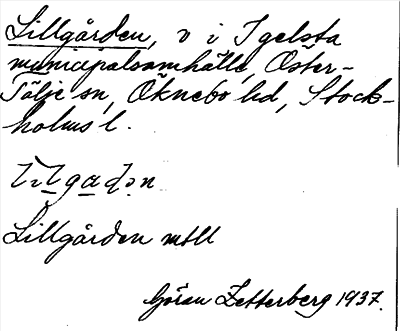 Lillgården, v i Igelsta
municipalsamhälle, Öster-
Tälje sn, Öknebo hd, Stock-
holms l.
Lillgården mtll
Göran Zetterberg 1937.